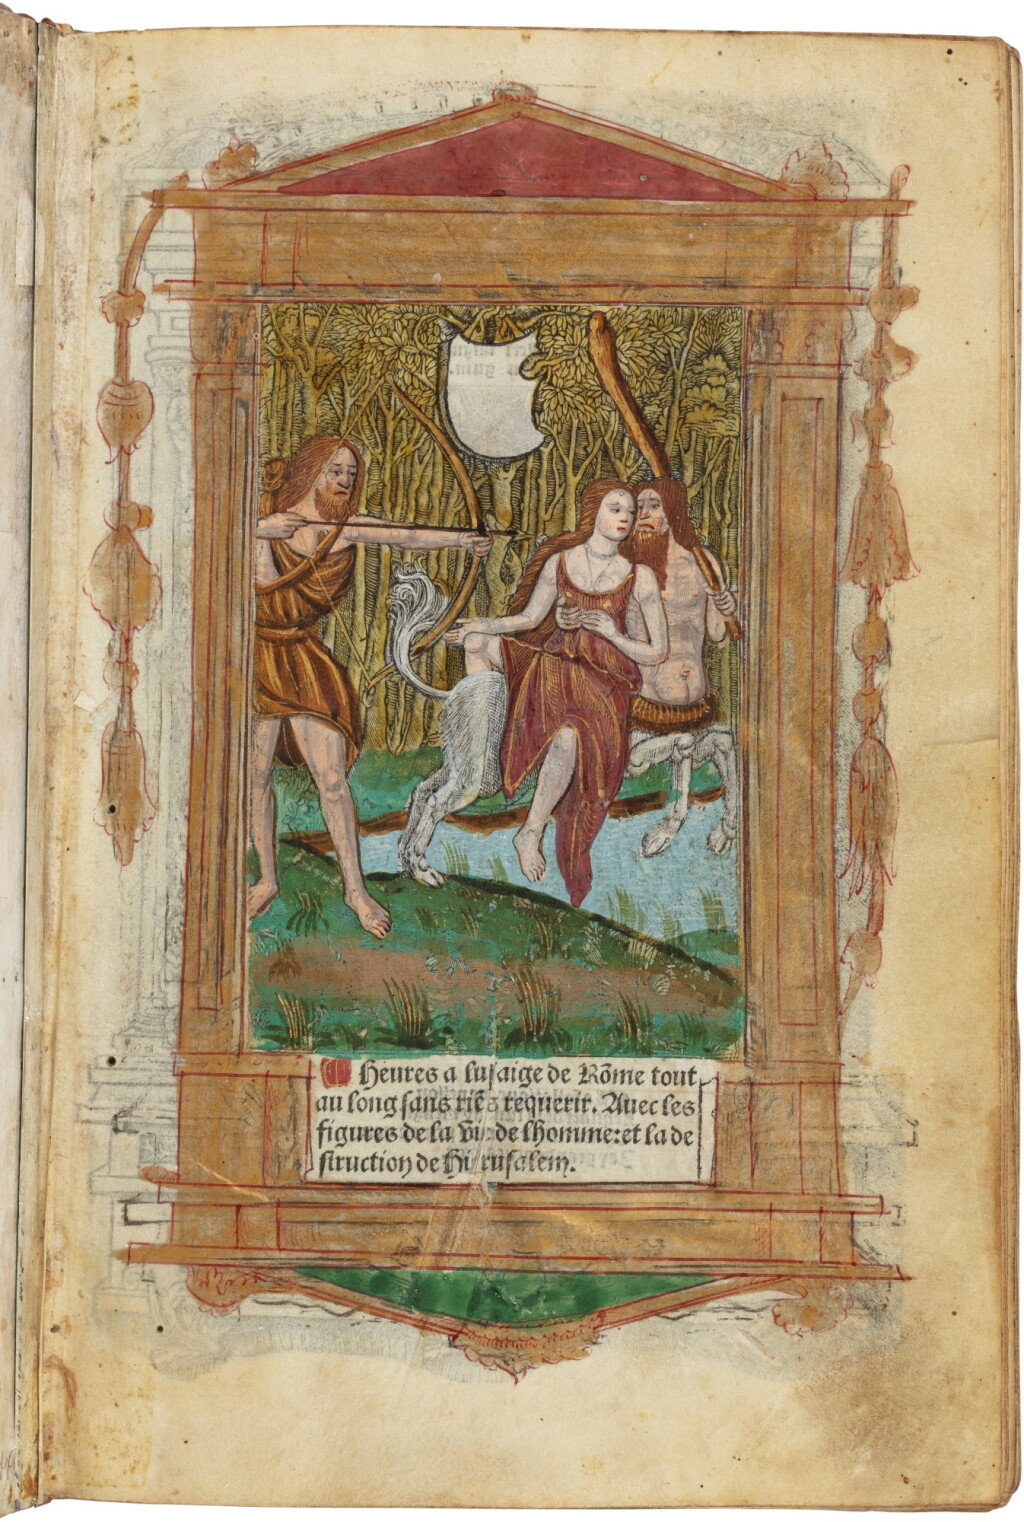 Heures a lusaige de Rõme tout
au long sans riẽs requerir. Auec les
figures de la vie de lhomme: et la de
struction de Hierusalem.